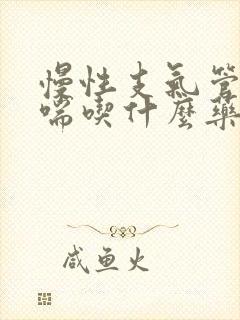 慢性支氣管
喘喫什麼藥
咸鱼火